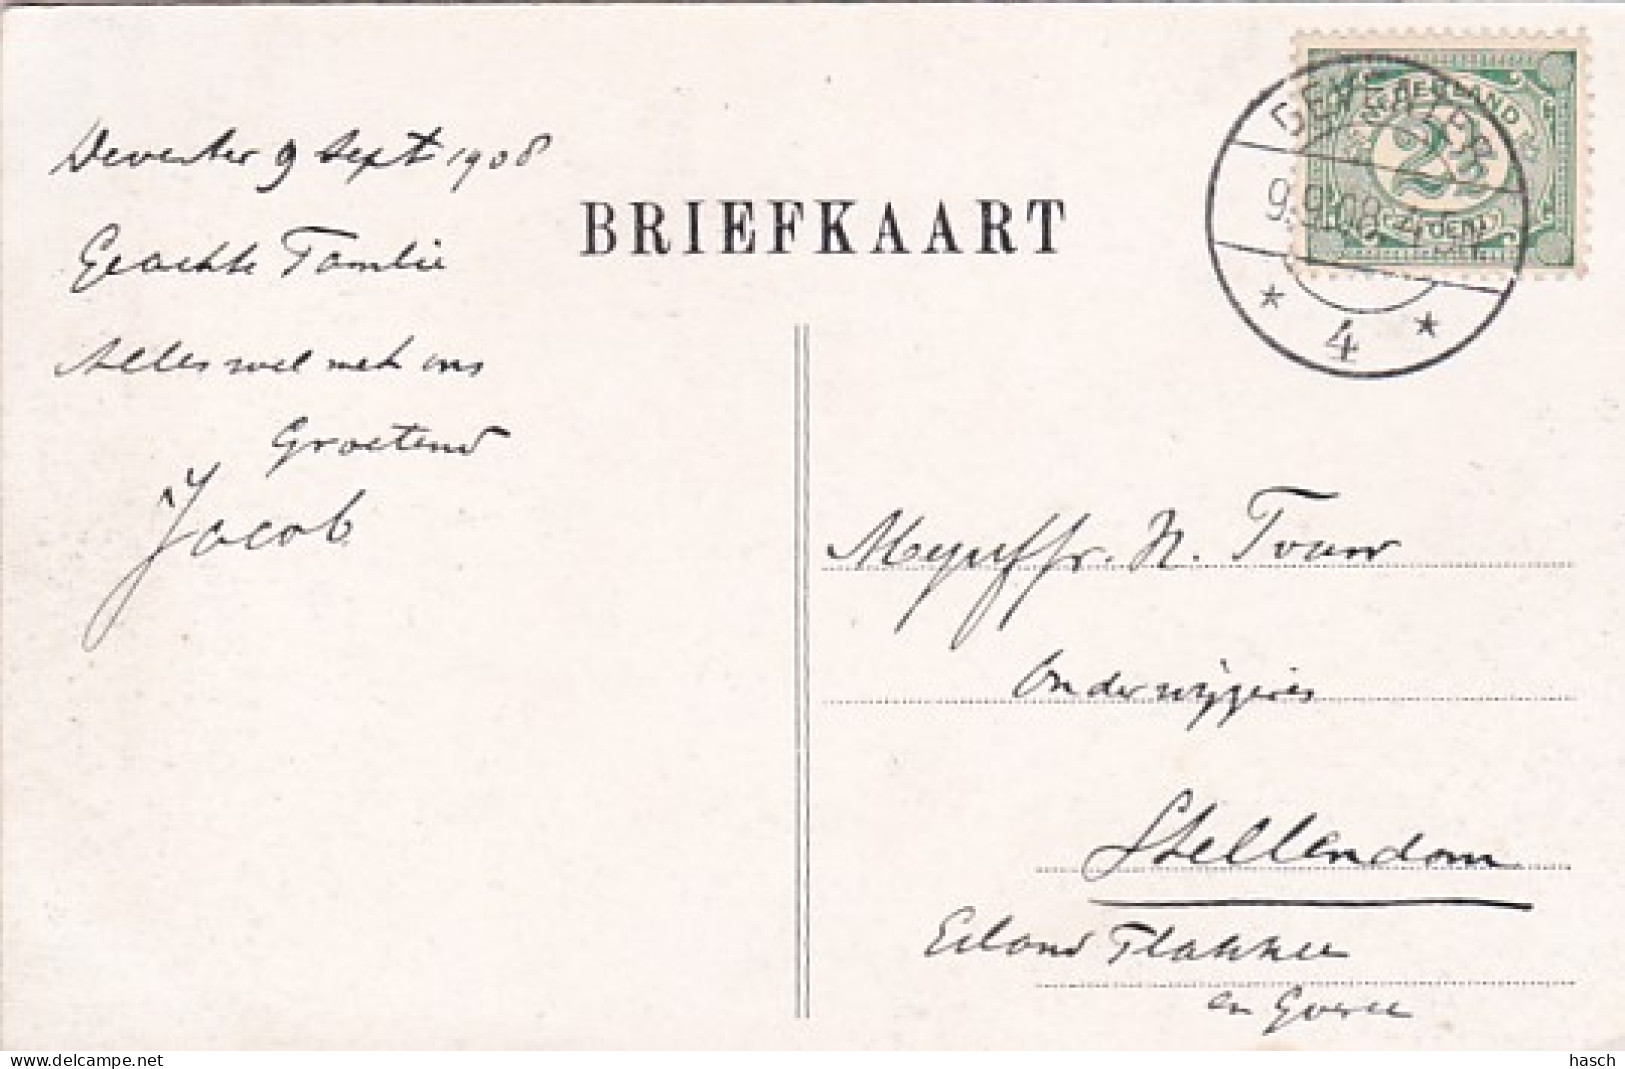 Deventer 9 Sept 1908
Geachte Familie
Alles wel met ons
Groetend
Jacob
BRIEFKAART
DEVENTER
9.9.08.
* 4 *
NEDERLAND
2½
CENT
Mejuffr. N. Touw
Onderwijzeres
Stellendam
Eiland Flakkee
en Goeree
www.delcampe.net
hasch